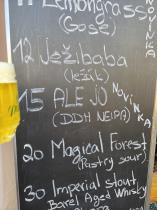 11 Lemongrass
(Gose)
12 Ježibaba
(ležák)
15 ALE JO
NOVINKA
(DDH NEIPA)
20 Magical Forest
(Pastry sour)
30 Imperial stout
Barel Aged Whisky
NOVINKA